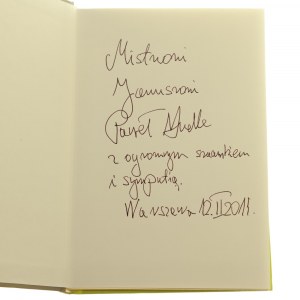 Mistrzowi
Januszowi
Paweł Huelle
z ogromnym szacunkiem
i sympatią.
Warszawa 12.II.2011.